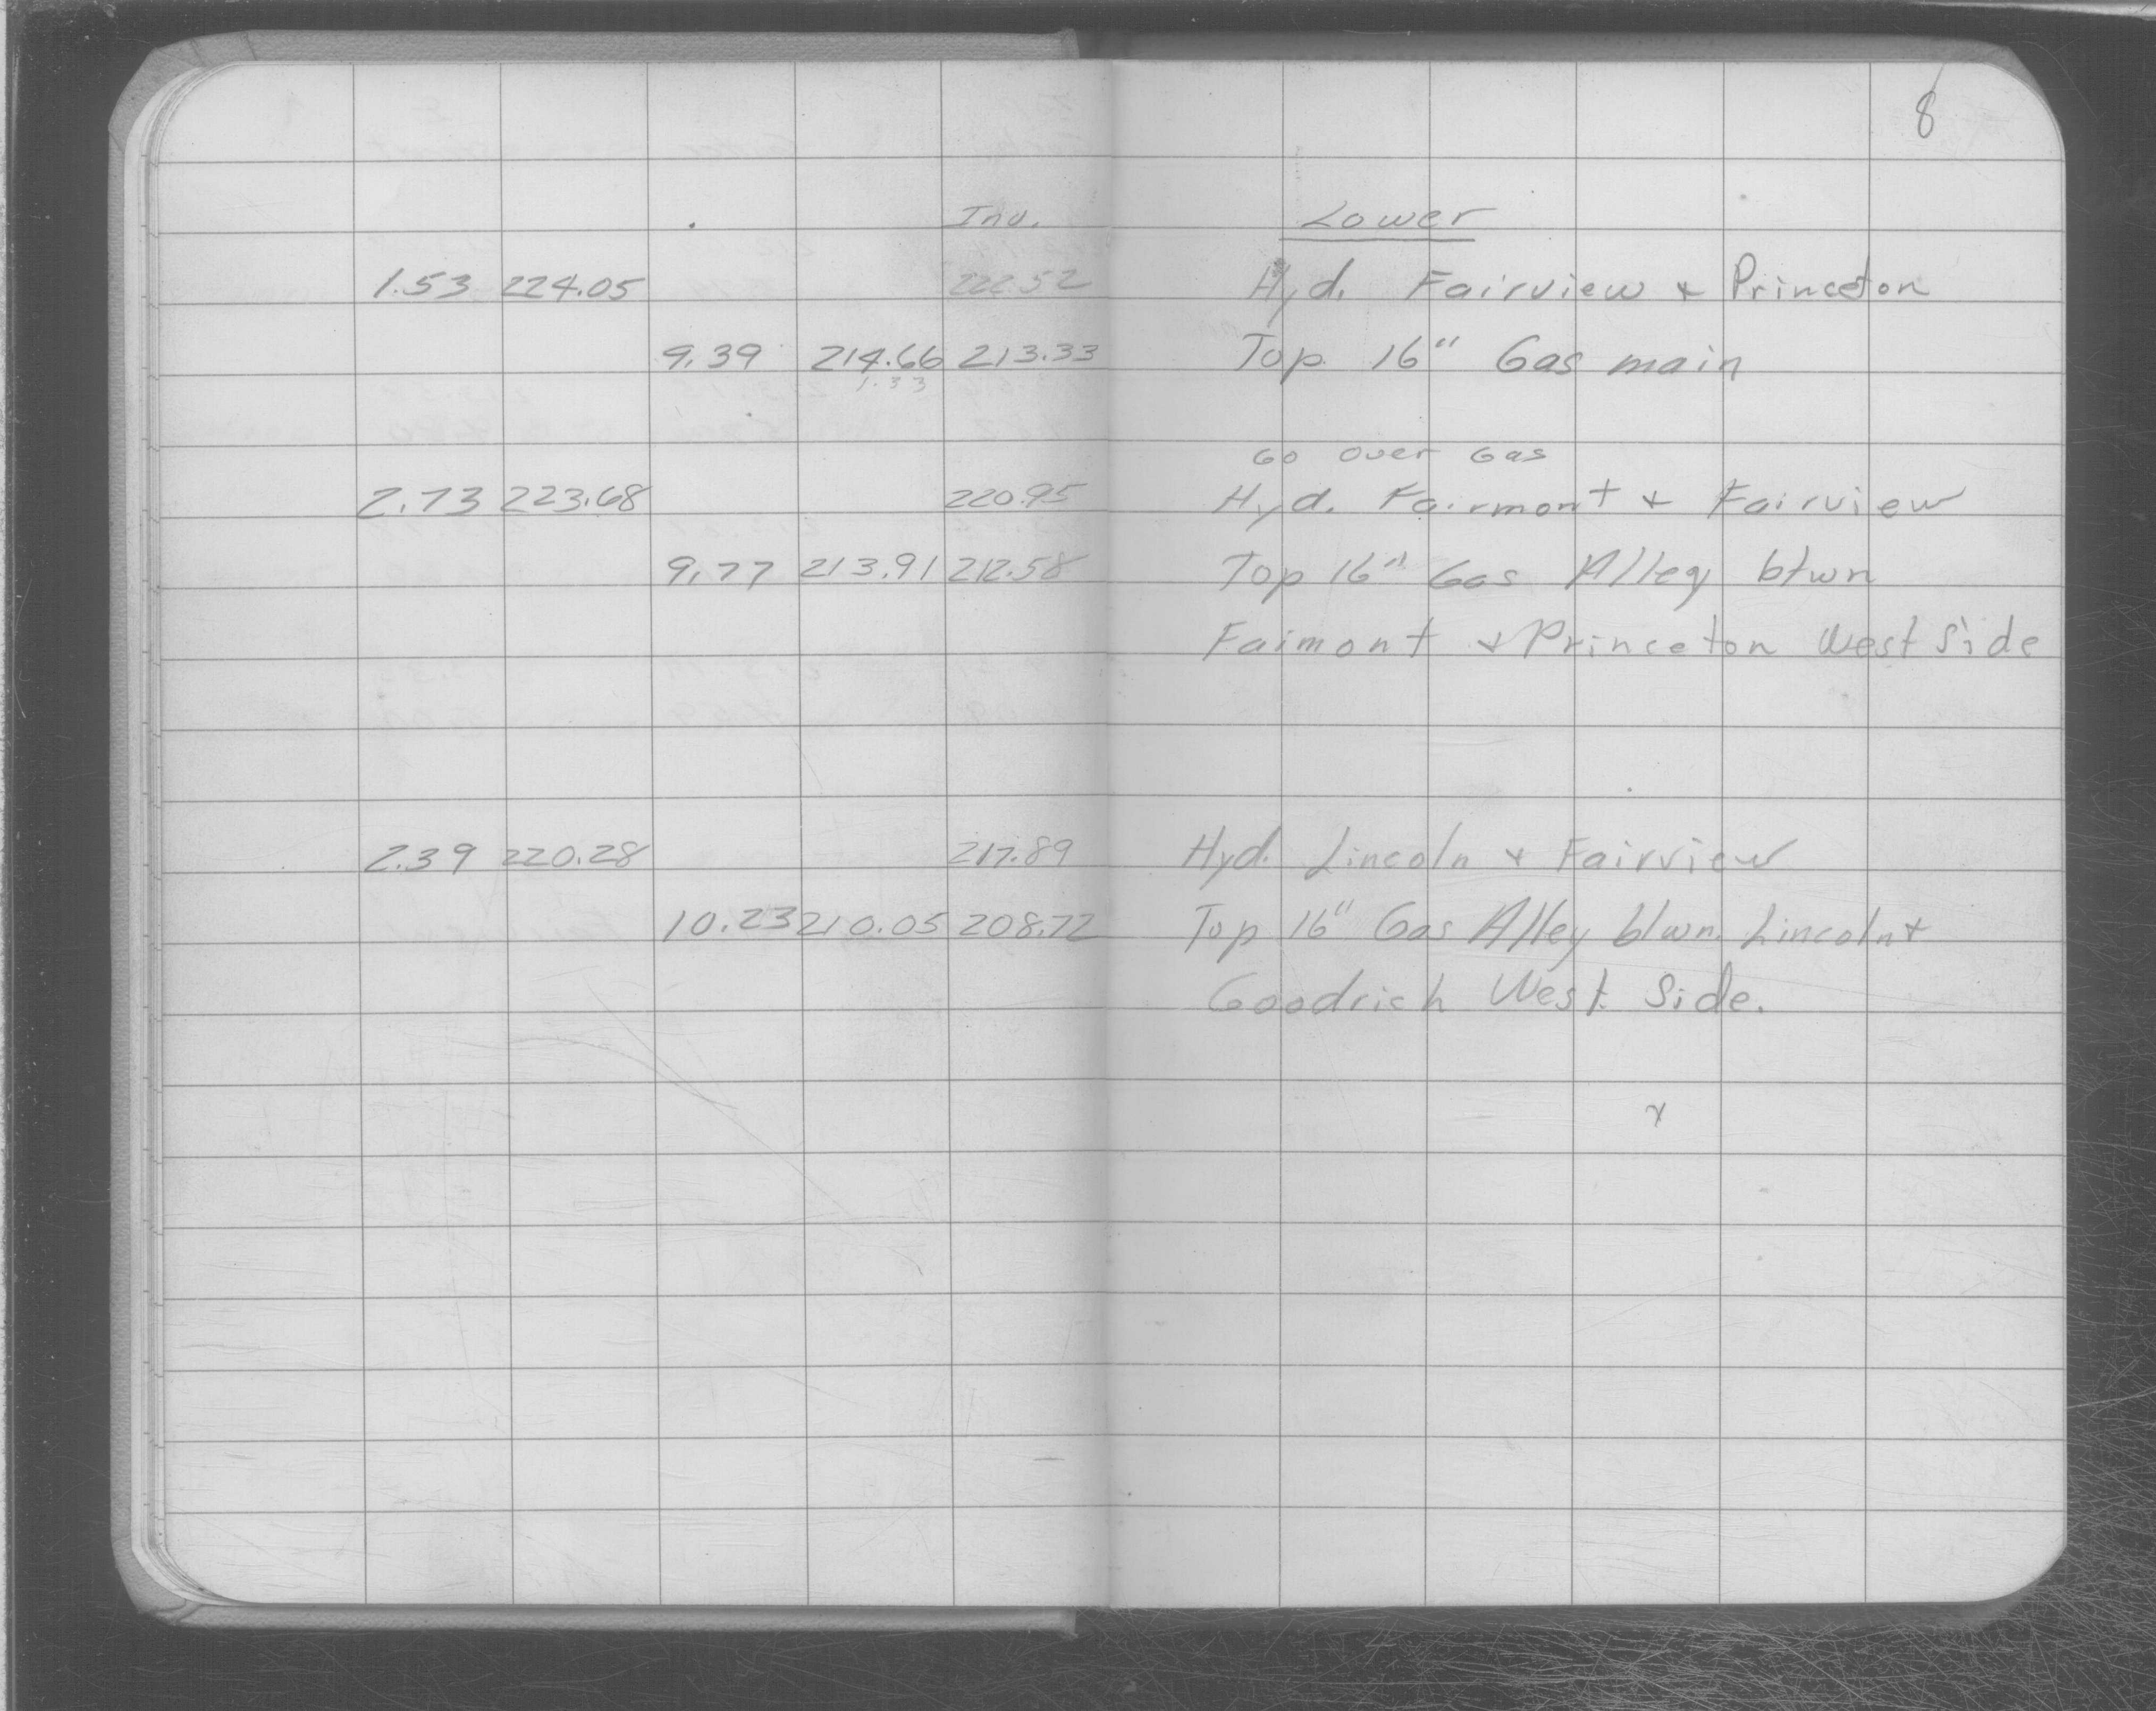 8
Inv. Lower
1.53 224.05 222.52 Hyd. Fairview + Princeton
9.39 214.66 213.33 Top 16" Gas main
1.33
Go over Gas
2.73 223.68 220.95 Hyd. Fairmont + Fairview
9.77 213.91 212.58 Top 16" Gas Alley btwn
Faimont + Princeton West Side
2.39 220.28 217.89 Hyd. Lincoln + Fairview
10.23 210.05 208.72 Top 16" Gas Alley btwn. Lincoln +
Goodrich West Side.